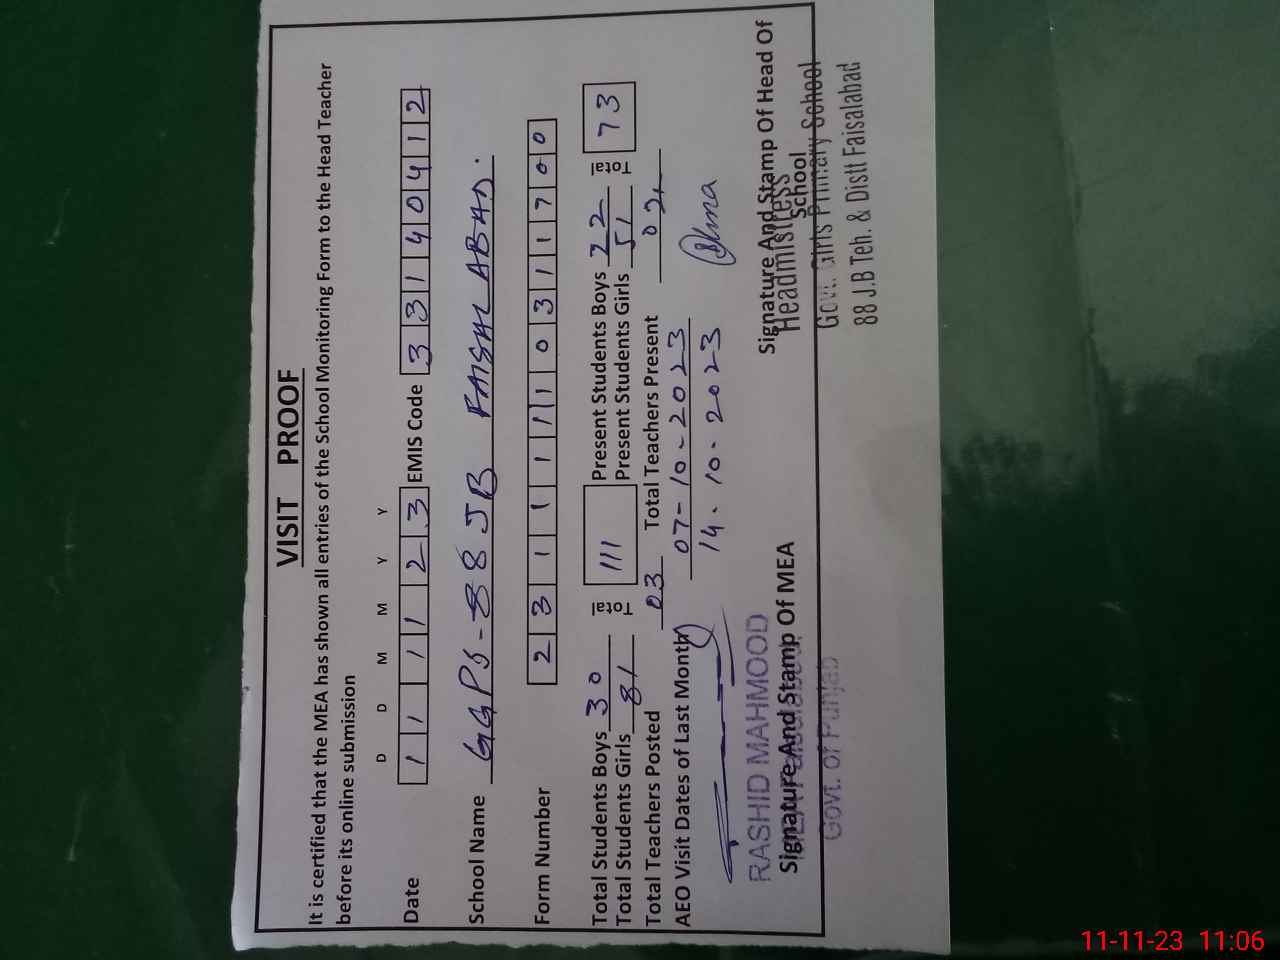 VISIT PROOF
It is certified that the MEA has shown all entries of the School Monitoring Form to the Head Teacher
before its online submission
D D M M Y Y
Date 1 1 1 1 2 3 EMIS Code 3 3 1 4 0 4 1 2
School Name GGPS-88 JB FAISALABAD.
Form Number 2 3 1 1 1 1 1 0 3 1 1 7 0 0
Total Students Boys 30 Total 111 Present Students Boys 22 Total 73
Total Students Girls 81 Present Students Girls 51
Total Teachers Posted 03 Total Teachers Present 02
AEO Visit Dates of Last Month 07-10-2023
14.10.2023
RASHID MAHMOOD
Signature And Stamp Of MEA
Govt. of Punjab
Signature And Stamp Of Head Of
School
Headmistress
Govt. Girls Primary School
88 J.B Teh. & Distt Faisalabad
11-11-23 11:06